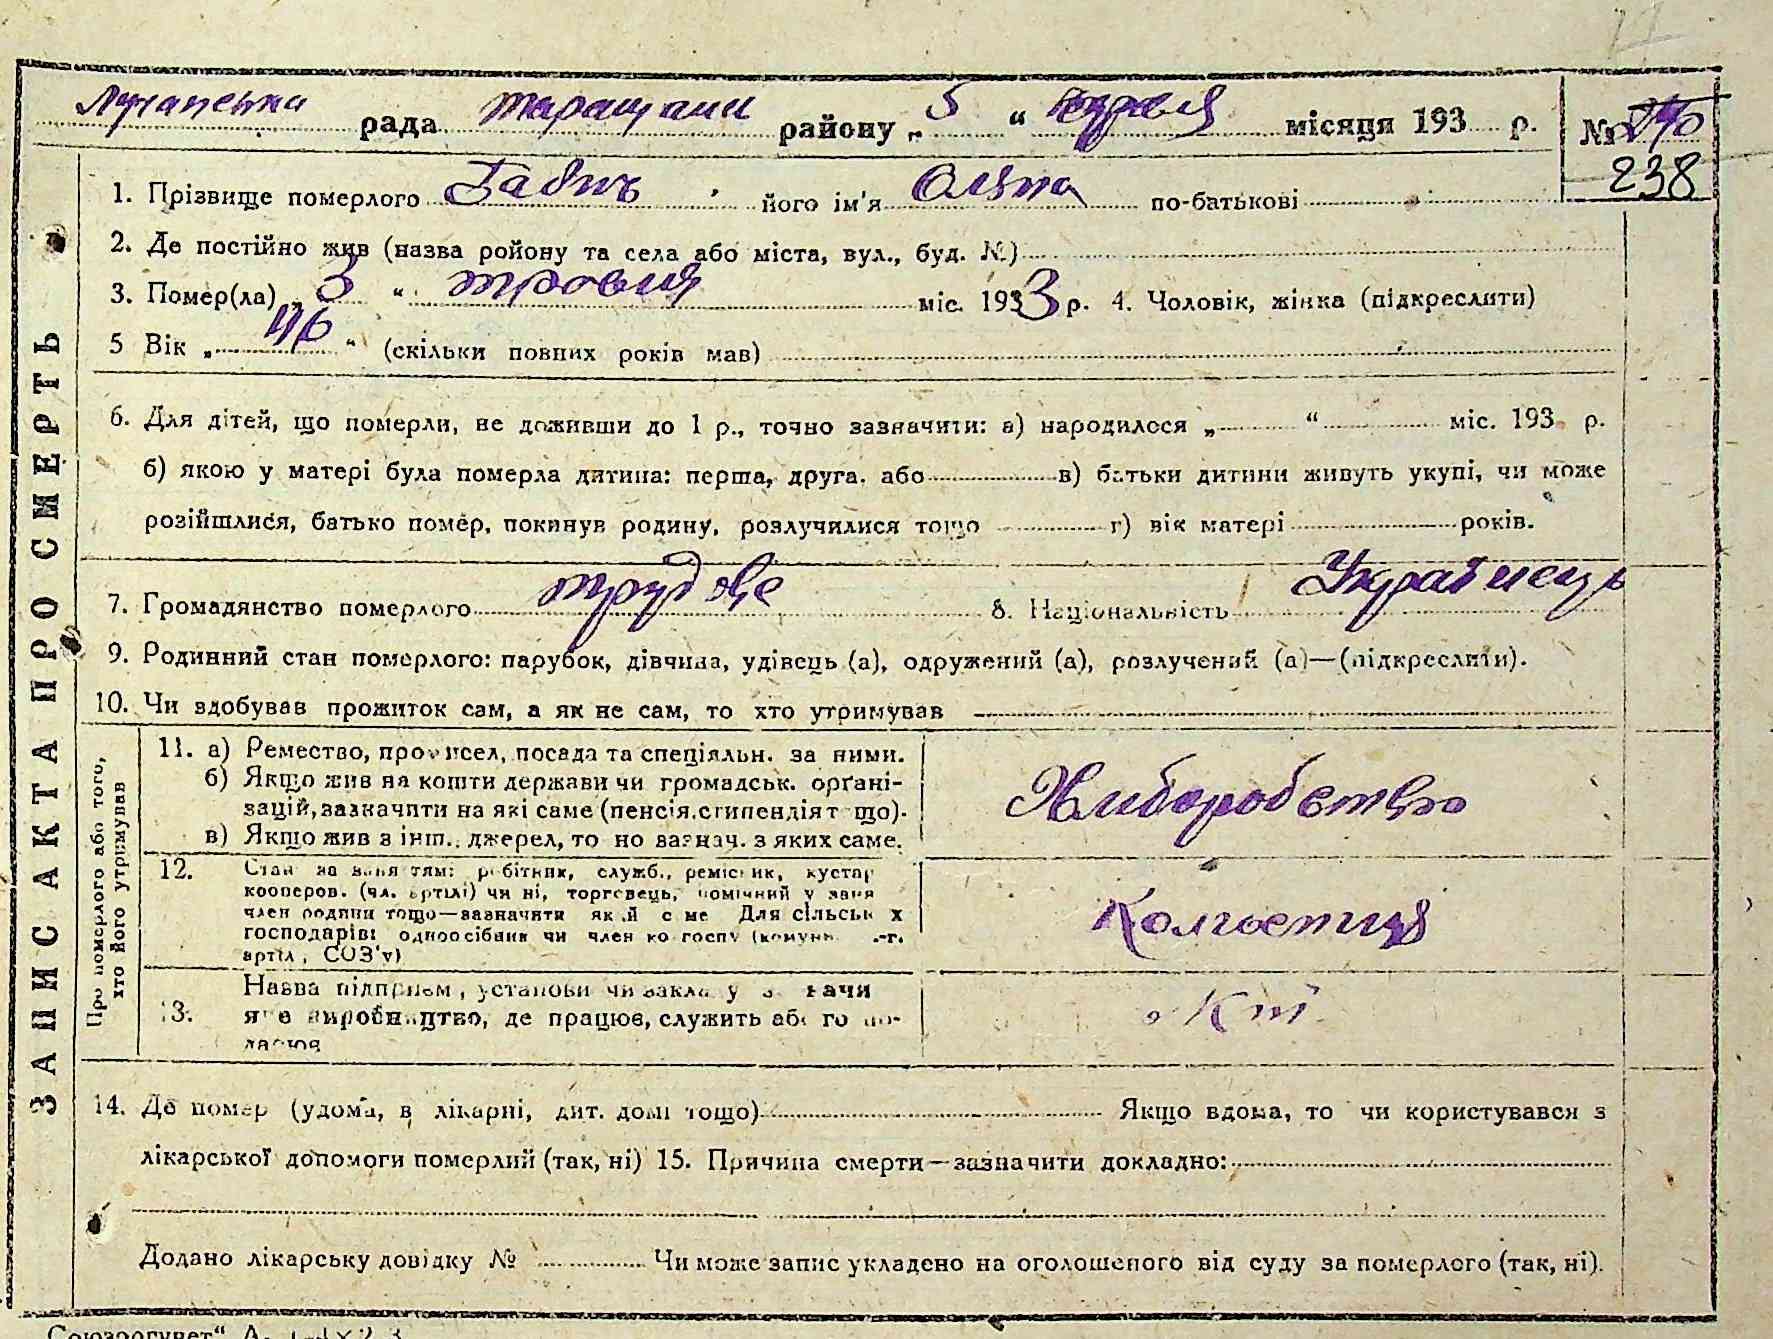 рада района „ 5 “ місяця 193 р. №
238
ЗАПИС АКТА ПРО СМЕРТЬ
1. Прізвище померлого його ім'я по-батькові
2. Де постійно жив (назва ройону та села або міста, вул., буд. №)
3. Помер(ла) „ 3 “ травня міс. 1933 р. 4. Чоловік, жінка (підкреслити)
5 Вік „ “ (скільки повних років мав)
6. Для дітей, що померли, не доживши до 1 р., точно зазначити: а) народилося „ “ міс. 193 р.
б) якою у матері була померла дитина: перша, друга. або в) батьки дитини живуть укупі, чи може
розійшлися, батько помер, покинув родину, розлучилися тощо г) вік матері років.
7. Громадянство померлого трудове 8. Національність Украінець
9. Родинний стан померлого: парубок, дівчина, удівець (а), одружений (а), розлучений (а)—(підкреслити).
10. Чи здобував прожиток сам, а як не сам, то хто утримував
Про померлого або того,
хто його утримував
11. а) Ремество, промисел, посада та спеціяльн. за ними.
б) Якщо жив на кошти держави чи громадськ. орґані-
зацій, зазначити на які саме (пенсія, стипендія т що).
в) Якщо жив з інш. джерел, то но зазнач. з яких саме.
Хлиборобство
12. Стан за заняттям: робітник, служб., ремісник, кустар
кооперов. (чл. артілі) чи ні, торговець, помічний у заня
член родини тощо—зазначити який с ме Для сільськ х
господарів: одноосібник чи член ко госпу
артіл, СОЗ'у)
13. Назва підприєм, установи чи закла у з начи
яке виробництво, де працює, служить або го по-
14. Де помер (удома, в лікарні, дит. домі тощо) Якщо вдома, то чи користувався з
лікарської допомоги померлий (так, ні) 15. Причина смерти—зазначити докладно:
Додано лікарську довідку № Чи може запис укладено на оголошеного від суду за померлого (так, ні).